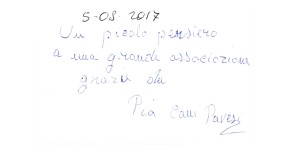 5-08-2017
Un piccolo pensiero
a una grande associazione
grazie da
Pia